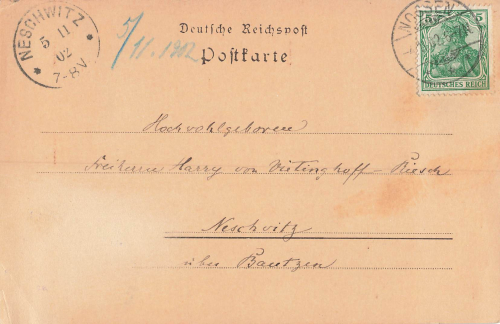 NESCHWITZ
5 11
02
7-8V.
5/11.1902
Deutsche Reichspost
Postkarte
NOSSEN
5 5
DEUTSCHES REICH
Hochwohlgeboren
Freiherrn Harry von Vietinghoff-Riesch
Neschwitz
über Bautzen